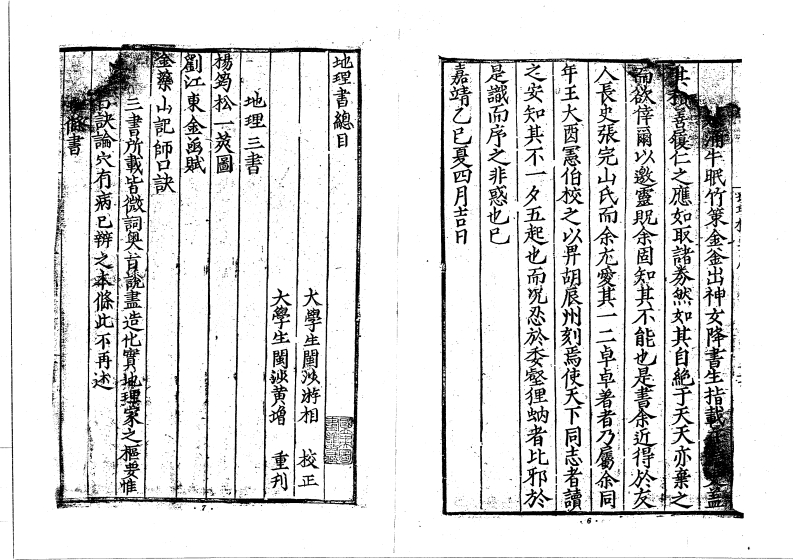 涌牛眠竹策金釜出神女降書生指載
其積善履仁之應如取諸券然如其自絶于天天亦棄之
而欲倖爾以邀靈貺余固知其不能也是書余近得於友
人長史張完山氏而余尤愛其一二卓卓著者乃屬余同
年王大酉憲伯校之以畀胡辰州刻焉使天下同志者讀
之安知其不一夕五起也而况忍於委壑狸蚋者比邪於
是識而序之非惑也已
嘉靖乙巳夏四月吉日
6
地理書總目
大學生閩沙游相 校正
大學生閩沙黄璿 重刋
地理三書
楊筠松一荚圖
劉江東金函賦
金藥山記師口訣
三書所載皆微詞奥旨說盡造化實地理家之樞要惟
口訣論穴有病已辨之本條此不再述
書
7